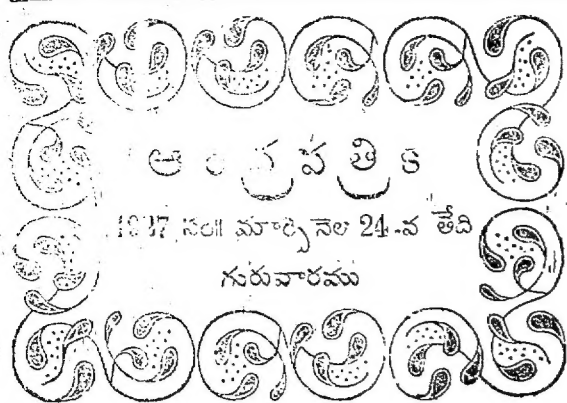 ఆంధ్రపత్రిక
1927 సం॥ మార్చి నెల 24-వ తేది
గురువారము